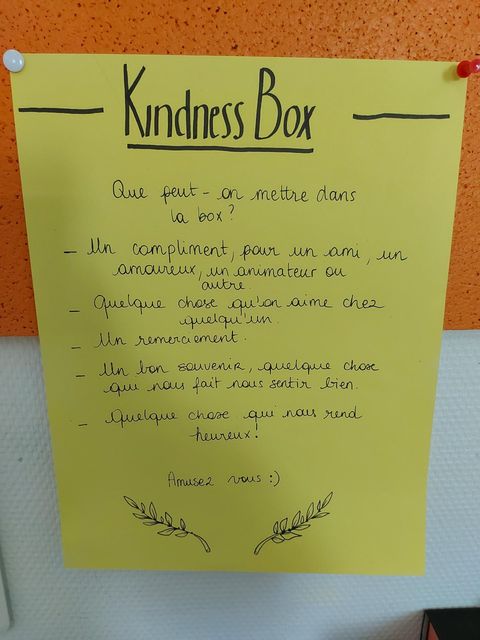 Kindness Box
Que peut-on mettre dans
la box?
- Un compliment, pour un ami, un
amoureux, un animateur ou
autre.
- Quelque chose qu'on aime chez
quelqu'un.
- Un remerciement.
- Un bon souvenir, quelque chose
qui nous fait nous sentir bien.
- Quelque chose qui nous rend
heureux!
Amusez vous :)